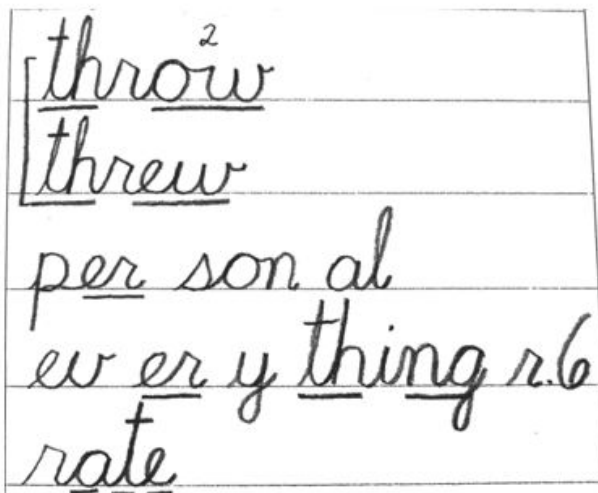 throw 2
threw
per son al
ev er y thing r.6
rate